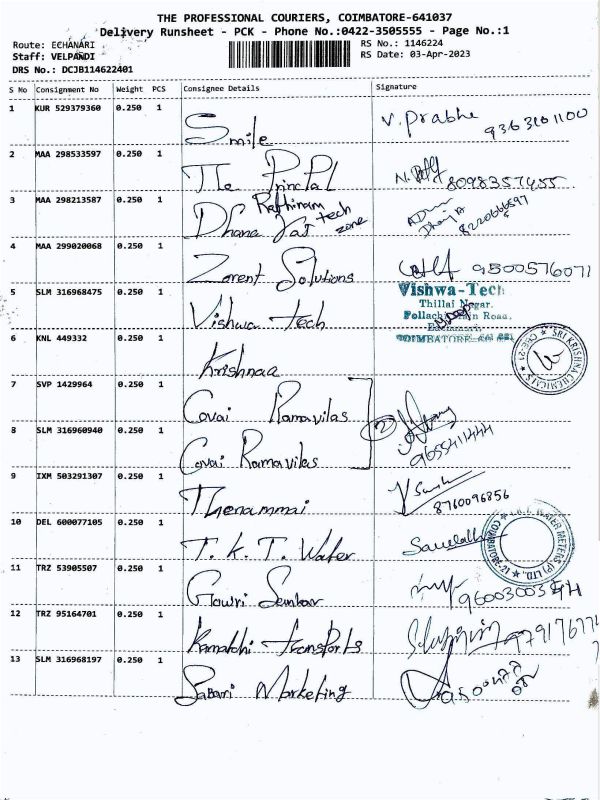 THE PROFESSIONAL COURIERS, COIMBATORE-641037
Delivery Runsheet - PCK - Phone No.:0422-3505555 - Page No.:1
Route: ECHANARI
RS No.: 1146224
Staff: VELPANDI
RS Date: 03-Apr-2023
DRS No.: DCJB114622401
S No Consignment No Weight PCS Consignee Details Signature
1 KUR 529379360 0.250 1 Smile V. Prabhu 9363201100
2 MAA 298533597 0.250 1 The Princpal 8098357455
3 MAA 298213587 0.250 1 Rathinam
Dhana tech zone 8220666597
4 MAA 299020068 0.250 1 Zorent Solutions 9500576071
5 SLM 316968475 0.250 1 Vishwa tech Vishwa-Tech
Thillai Nagar,
Pollachi Main Road,
Eachanari,
COIMBATORE-641 021
6 KNL 449332 0.250 1 Krishnaa SRI KRISHNA CHEMICALS ★ CBE-21 ★
7 SVP 1429964 0.250 1 Covai Ramavilas
8 SLM 316960940 0.250 1 Covai Ramavilas 2 9655411444
9 IXM 503291307 0.250 1 Thenammai 8760096856
10 DEL 600077105 0.250 1 T. K. T. Water WATER METERS (P) LTD., ★ COIMBATORE-21 ★
11 TRZ 53905507 0.250 1 Gowri Sankar 9600300344
12 TRZ 95164701 0.250 1 Kamatchi transports
13 SLM 316968197 0.250 1 Sabari Marketing